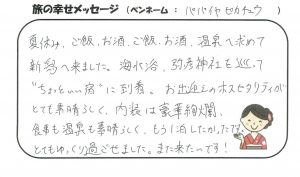 旅の幸せメッセージ (ペンネーム : パパイヤ セカチュウ )
夏休み、ご飯、お酒、ご飯、お酒、温泉を求めて
新潟へ来ました。海代谷、弥彦神社を巡って
"ちょといい宿"に到着。お出迎えのホスピタリティが
とても素晴らしく、内装は豪華絢爛、
食事も温泉も素晴らしく、もう1泊したかったです
とてもゆっくり過ごせました。また来たいです!